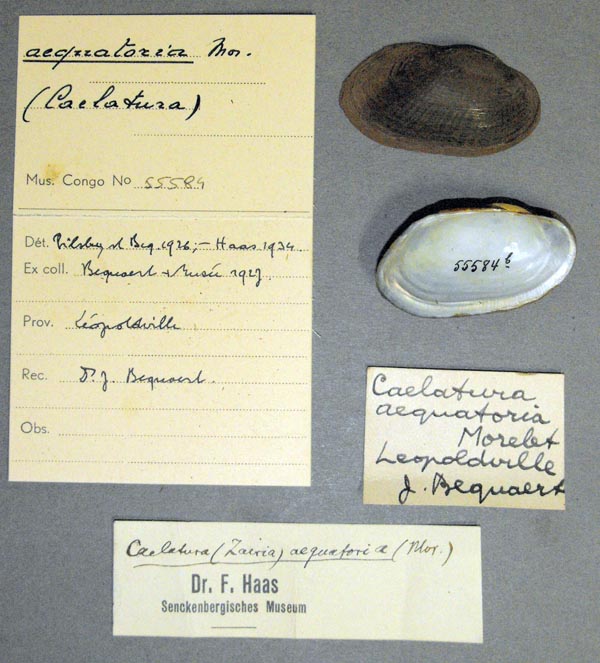 aequatoria Mor.
(Caelatura)
Mus. Congo No 55584
Dét. Pilsbry et Beq. 1926; – Haas 1934.
Ex coll. Bequaert + Musée 1927
Prov. Léopoldville
Rec. Dr. J. Bequaert.
Obs.
55584 b
Caelatura
aequatoria
Morelet
Leopoldville
J. Bequaert
Caelatura (Zairia) aequatoria (Mor.)
Dr. F. Haas
Senckenbergisches Museum